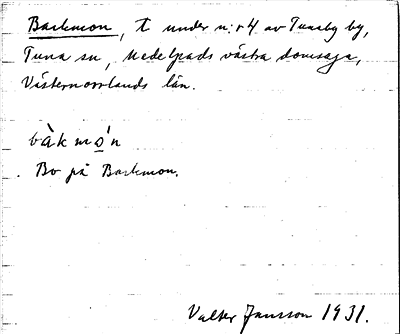 Backmon, t under n:r 4 av Tunaby by,
Tuna sn, Medelpads västra domsaga,
Västernorrlands län.
bàkmǫ́n
Bo på Backmon.
Valter Jansson 1931.